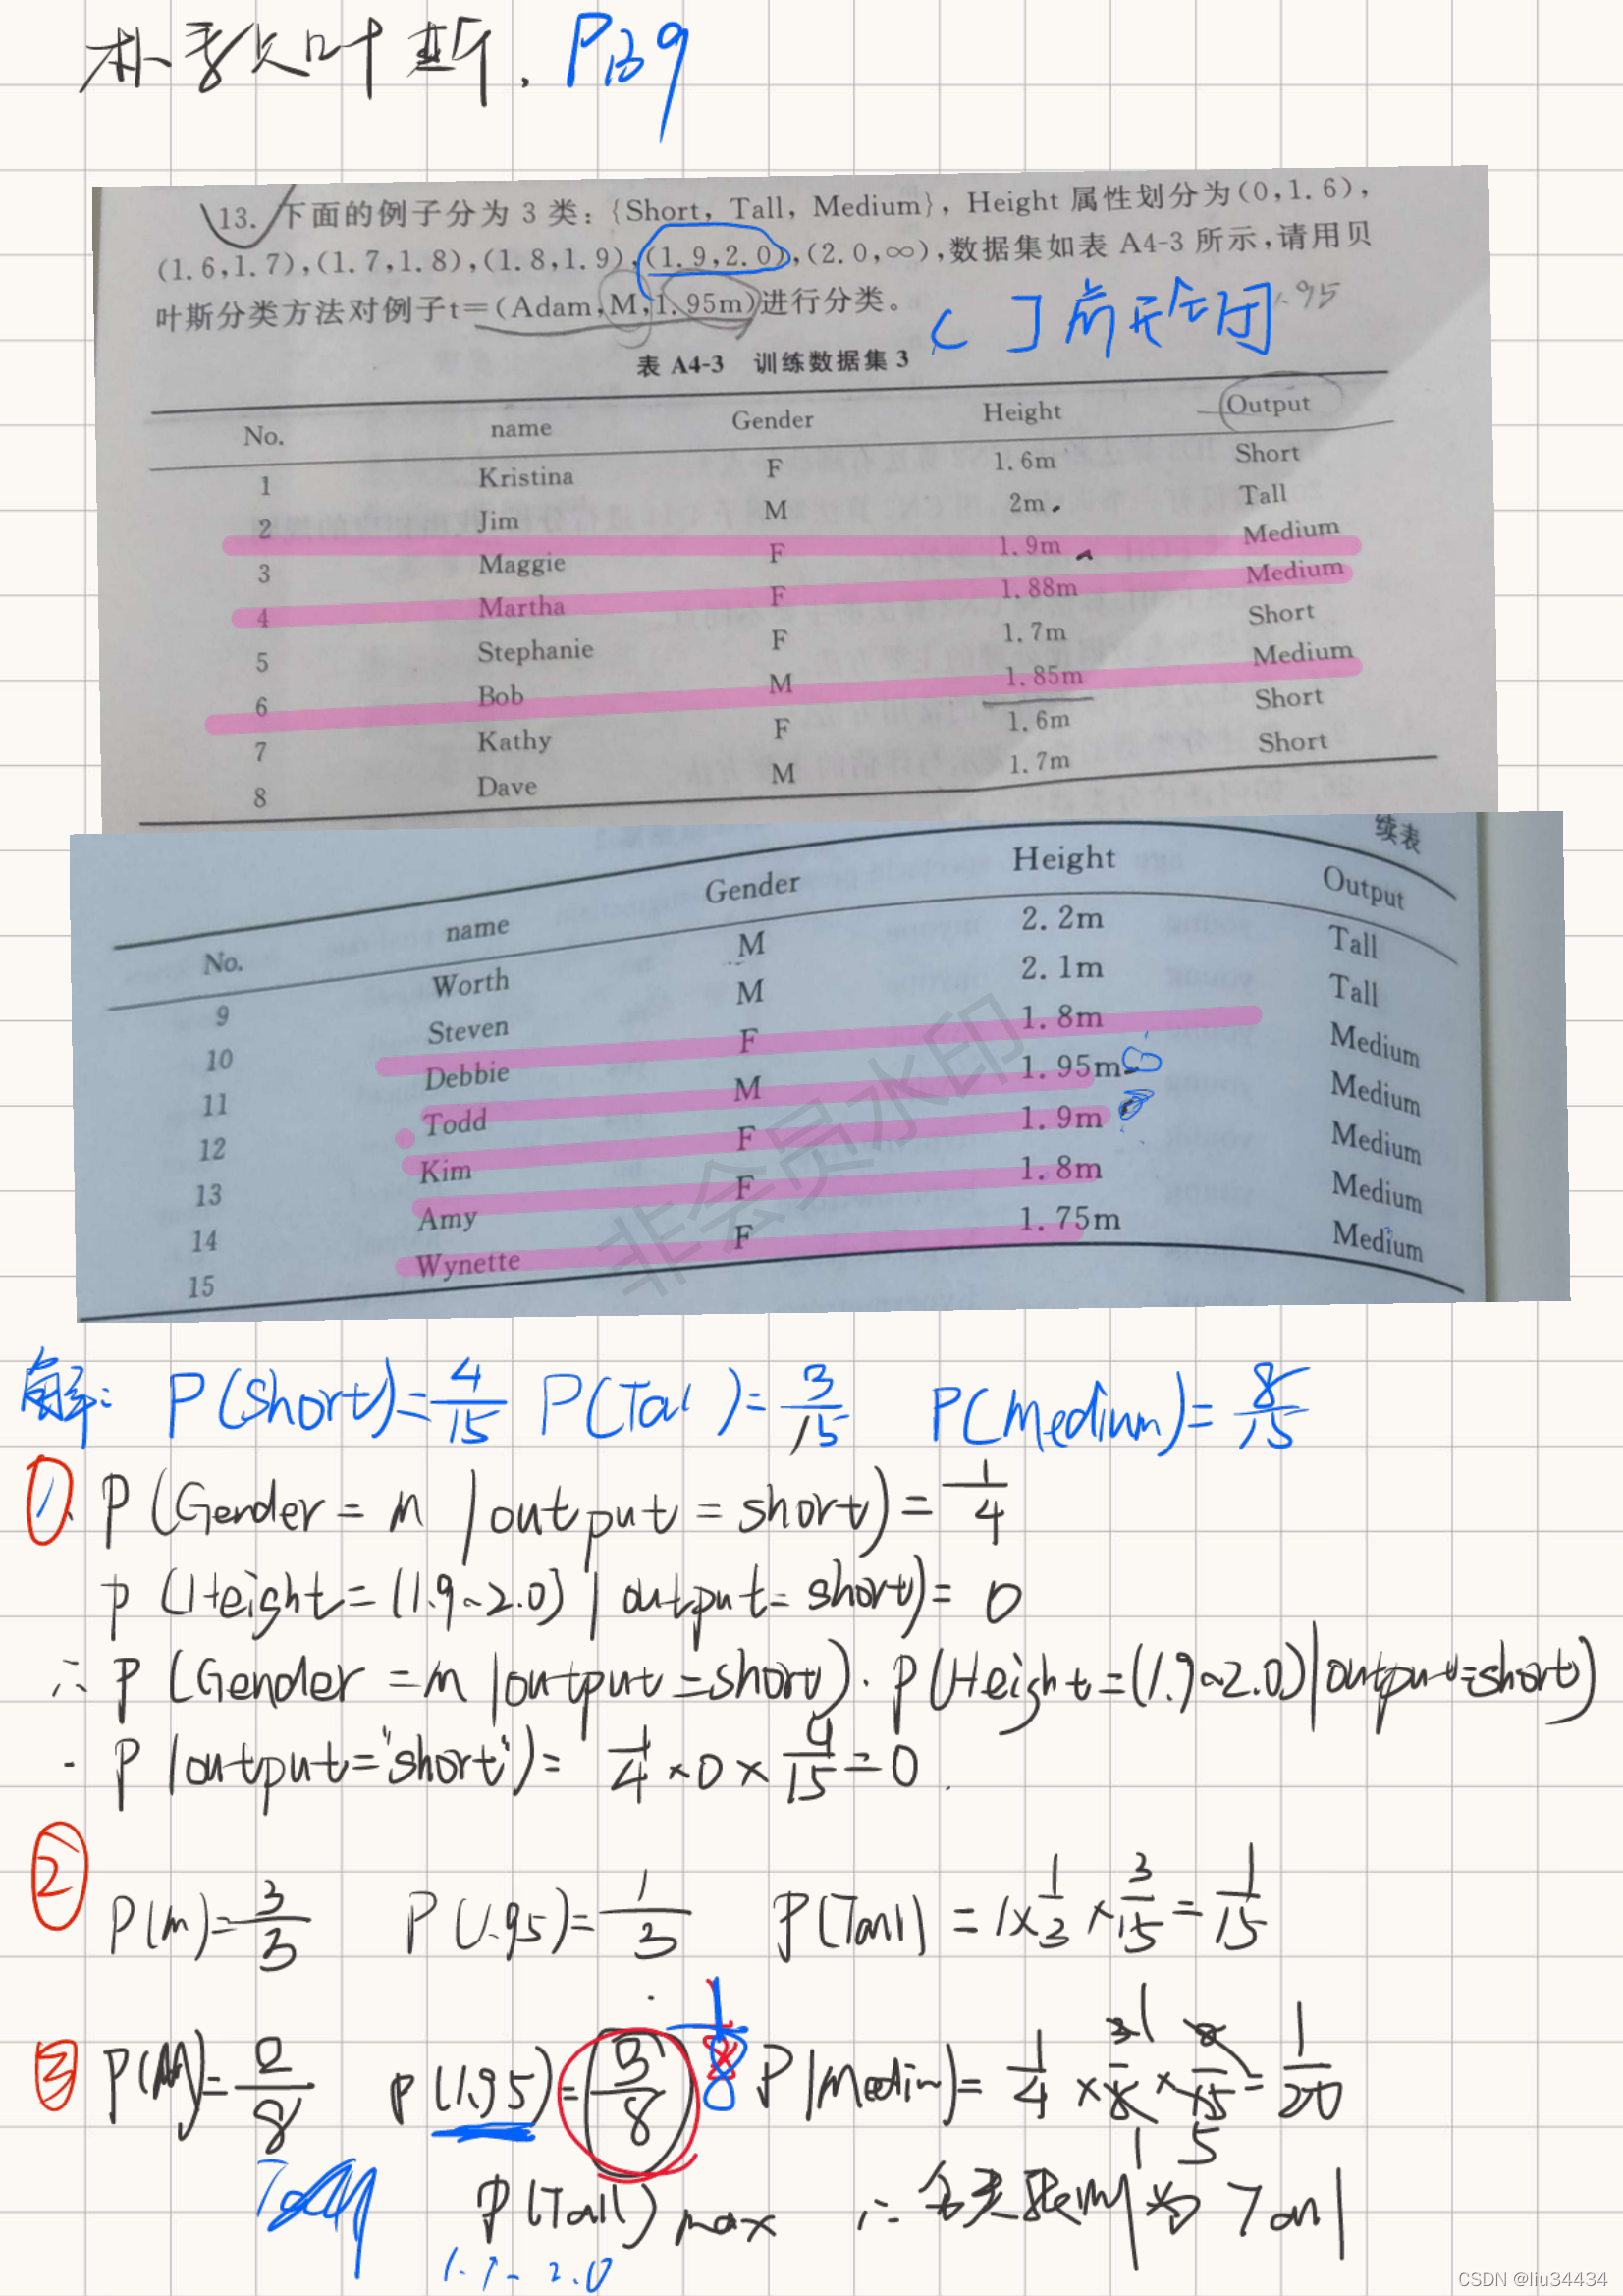 朴素贝叶斯, P139
13. 下面的例子分为 3 类: {Short, Tall, Medium}, Height 属性划分为(0,1.6),
(1.6,1.7),(1.7,1.8),(1.8,1.9),(1.9,2.0),(2.0,∞),数据集如表 A4-3 所示,请用贝
叶斯分类方法对例子t=(Adam,M,1.95m)进行分类。
( ] 前开后闭
1.95
表 A4-3 训练数据集 3
No. name Gender Height Output
1 Kristina F 1.6m Short
2 Jim M 2m Tall
3 Maggie F 1.9m Medium
4 Martha F 1.88m Medium
5 Stephanie F 1.7m Short
6 Bob M 1.85m Medium
7 Kathy F 1.6m Short
8 Dave M 1.7m Short
续表
No. name Gender Height Output
9 Worth M 2.2m Tall
10 Steven M 2.1m Tall
11 Debbie F 1.8m Medium
12 Todd M 1.95m Medium
13 Kim F 1.9m Medium
14 Amy F 1.8m Medium
15 Wynette F 1.75m Medium
非会员水印
解: P(Short)=4/15 P(Tal)=3/15 P(Medium)=8/15
① P(Gender=m|output=short)=1/4
P(Height=(1.9~2.0)|output=short)=0
∴ P(Gender=m|output=short)·P(Height=(1.9~2.0)|output=short)
· P(output='short')=1/4×0×4/15=0
② P(m)=3/3 P(1.95)=1/3 P(Tall)=1×1/3×3/15=1/15
③ P(M)=2/8 P(1.95)=3/8 1/8 P(Medium)=1/4×3/8×8/15=1/20
P(Tall)max ∴ 为Tall
CSDN @liu34434